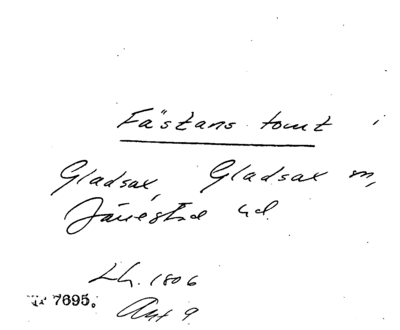 Fästans tomt i
Gladsax, Gladsax sn,
Järrestad hd.
Lh. 1806
7695.
Akt 9